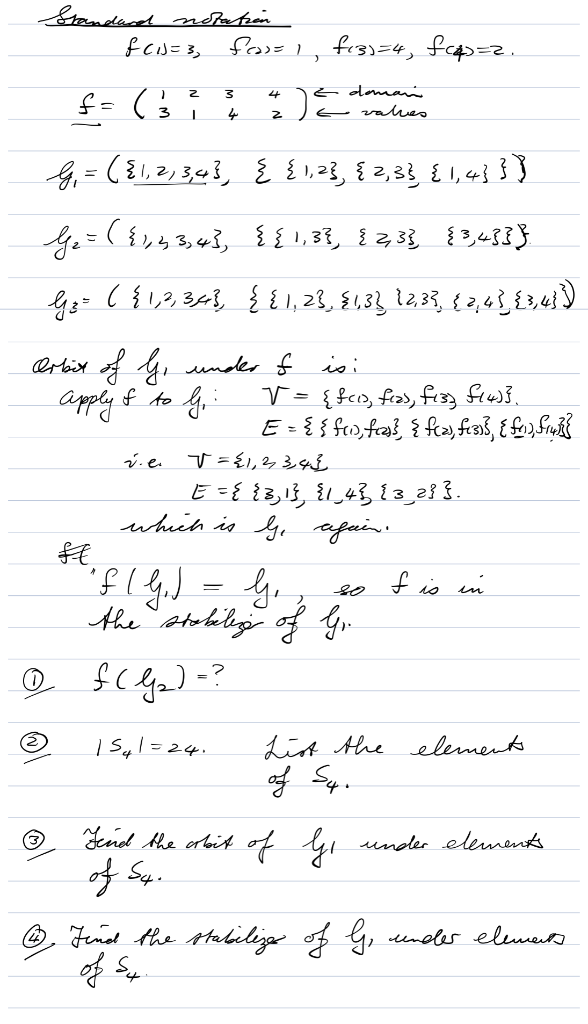 Standard notation
f(1)=3, f(2)=1, f(3)=4, f(4)=2.
f = ( 1 2 3 4 ) ← domain
3 1 4 2 ← values
G₁ = ({1,2,3,4}, { {1,2}, {2,3}, {1,4} })
G₂ = ({1,2,3,4}, {{1,3}, {2,3}, {3,4}}}
G₃ = ({1,2,3,4}, {{1,2}, {1,3}, {2,3}, {2,4}, {3,4}})
Orbit of G₁ under f is:
Apply f to G₁: V = {f(1), f(2), f(3), f(4)}.
E = {{f(1), f(2)}, {f(2), f(3)}, {f(1), f(4)}}
i.e. V = {1,2,3,4}
E = { {3,1}, {1,4}, {3,2} }.
which is G₁ again.
"f(G₁) = G₁, so f is in
the stabilizer of G₁.
① f(G₂) = ?
② |S₄| = 24. List the elements
of S₄.
③ Find the orbit of G₁ under elements
of S₄.
④ Find the stabilizer of G₁ under elements
of S₄.